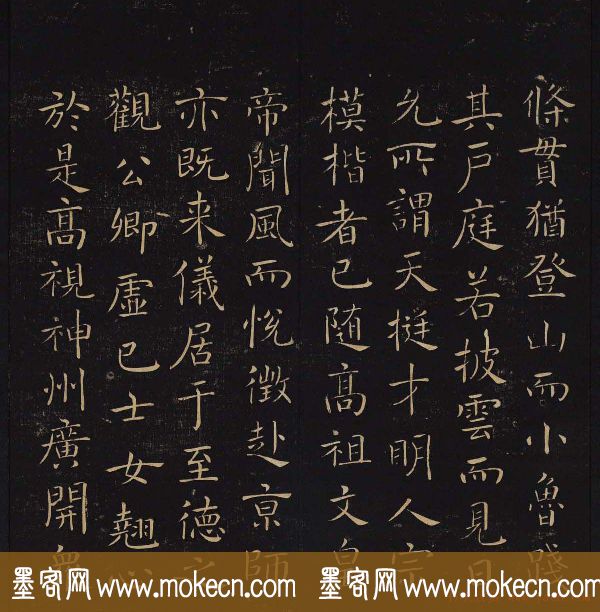 條貫猶登山而小魯
其戶庭若披雲而見
允所謂天挺才明人宗
模楷者已随髙祖文皇
帝聞風而悅徵赴京師
亦既来儀居于至德
觀公卿虛已士女翹
於是髙視神州廣開
墨客网 www.mokecn.com 墨客网 www.mokecn.com